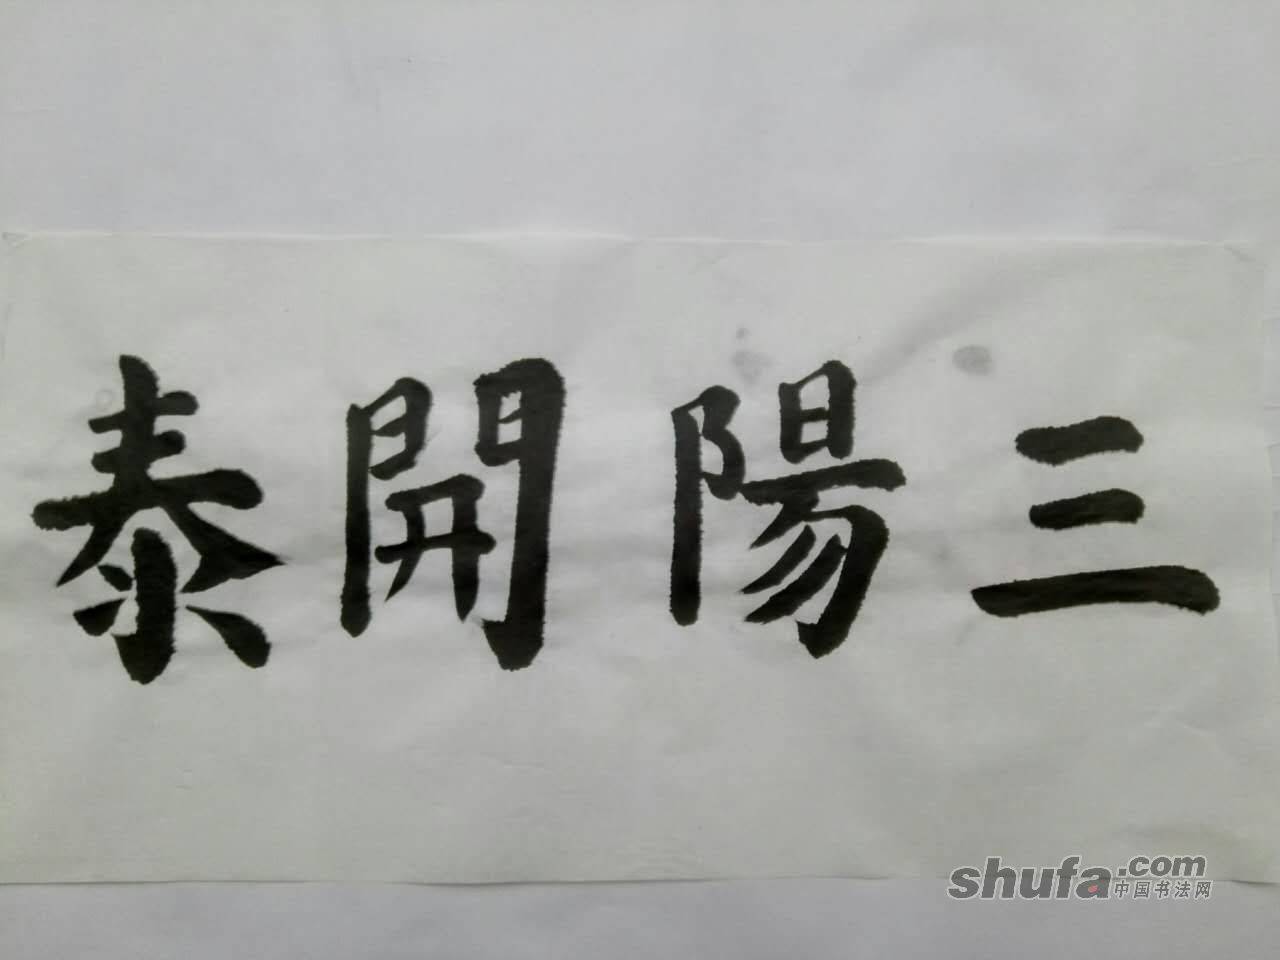 三陽開泰
shufa.com
中国书法网